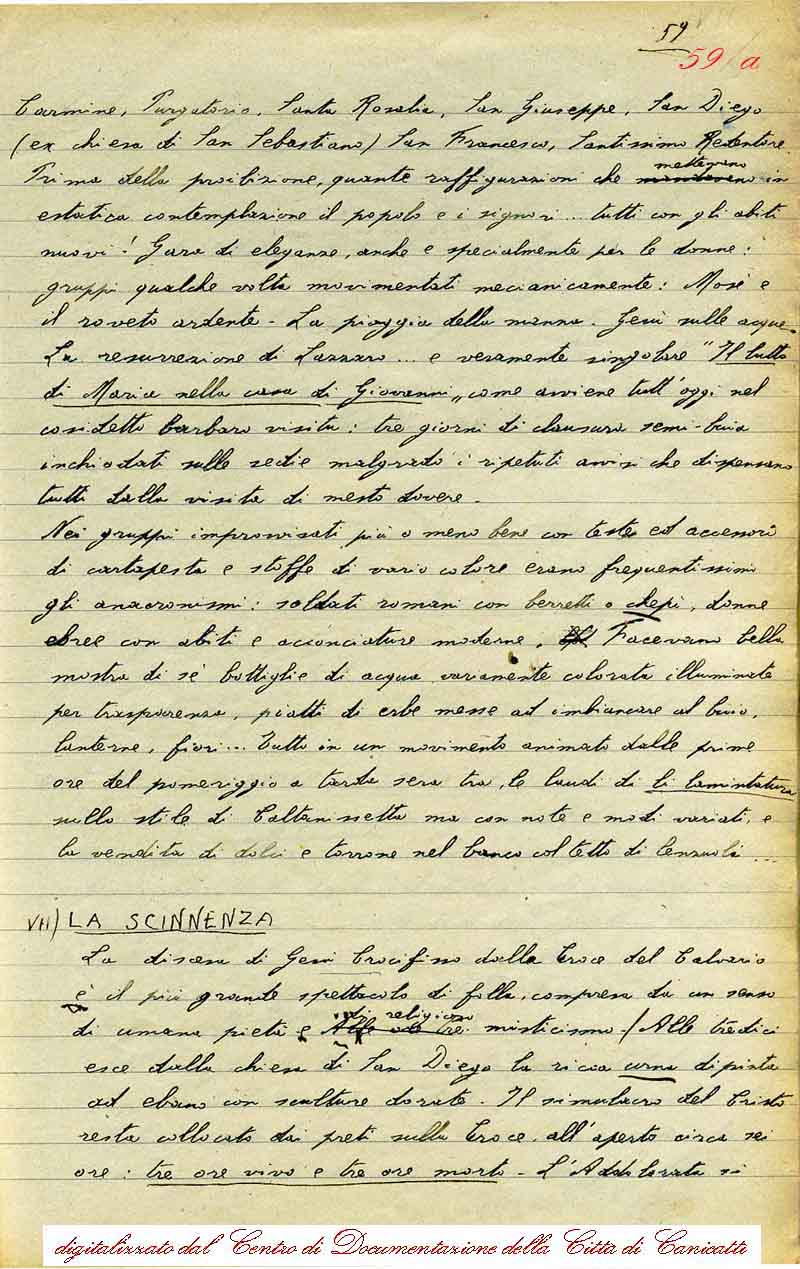 59
59 a
Carmine, Purgatorio, Santa Rosalia, San Giuseppe, San Diego
(ex chiesa di San Sebastiano) San Francesco, Santissimo Redentore.
Prima della proibizione, quante raffigurazioni che mettevano in
estatica contemplazione il popolo e i signori... tutti con gli abiti
nuovi! Gara di eleganze, anche e specialmente per le donne:
gruppi qualche volta movimentati meccanicamente: Mosè e
il roveto ardente - La pioggia della manna. Gesù sulle acque.
La resurrezione di Lazzaro... e veramente singolare "Il lutto
di Maria nella casa di Giovanni„ come avviene tutt'oggi nel
cosidetto barbaro visitu: tre giorni di clausura semi-buia
inchiodati sulle sedie malgrado i ripetuti avvisi che dispensano
tutti dalla visita di mesto dovere.
Nei gruppi improvvisati più o meno bene con teste ed accessori
di cartapesta e stoffe di vario colore erano frequentissimi
gli anacronismi: soldati romani con berretti o chepì, donne
ebree con abiti e acconciature moderne. Facevano bella
mostra di sè bottiglie di acqua variamente colorata illuminate
per trasparenza, piatti di erbe messe ad imbiancare al buio,
lanterne, fiori... Tutto in un movimento animato dalle prime
ore del pomeriggio a tarda sera tra, le laudi di li lamintatura
sullo stile di Caltanissetta ma con note e modi variati, e
la vendita di dolci e torrone nel banco col tetto di lenzuoli ...
VII) LA SCINNENZA
La discesa di Gesù Crocifisso dalla Croce del Calvario
è il più grande spettacolo di folla, compresa da un senso
di umana pietà e di religioso misticismo./Alle tredici
esce dalla chiesa di San Diego la ricca urna dipinta
ad ebano con sculture dorate. Il simulacro del Cristo
resta collocato dai preti sulla Croce, all'aperto circa sei
ore: tre ore vivo e tre ore morto - L'Addolorata si
digitalizzato dal Centro di Documentazione della Città di Canicattì